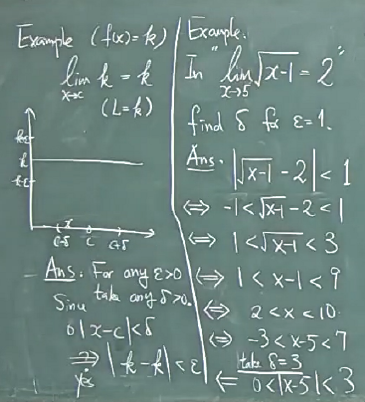 Example (f(x)=k)
lim k = k
x→c
(L=k)
k+ε
k
k-ε
x
c-δ c c+δ
Ans: For any ε>0
take any δ>0.
Since
0<|x-c|<δ
⇒ |k-k|<ε
yes
Example.
In "lim √x-1 = 2"
x→5
find δ for ε=1.
Ans. |√x-1 -2|<1
⇔ -1<√x-1 -2<1
⇔ 1<√x-1<3
⇔ 1<x-1<9
⇔ 2<x<10.
⇔ -3<x-5<7
take δ=3
⇐ 0<|x-5|<3